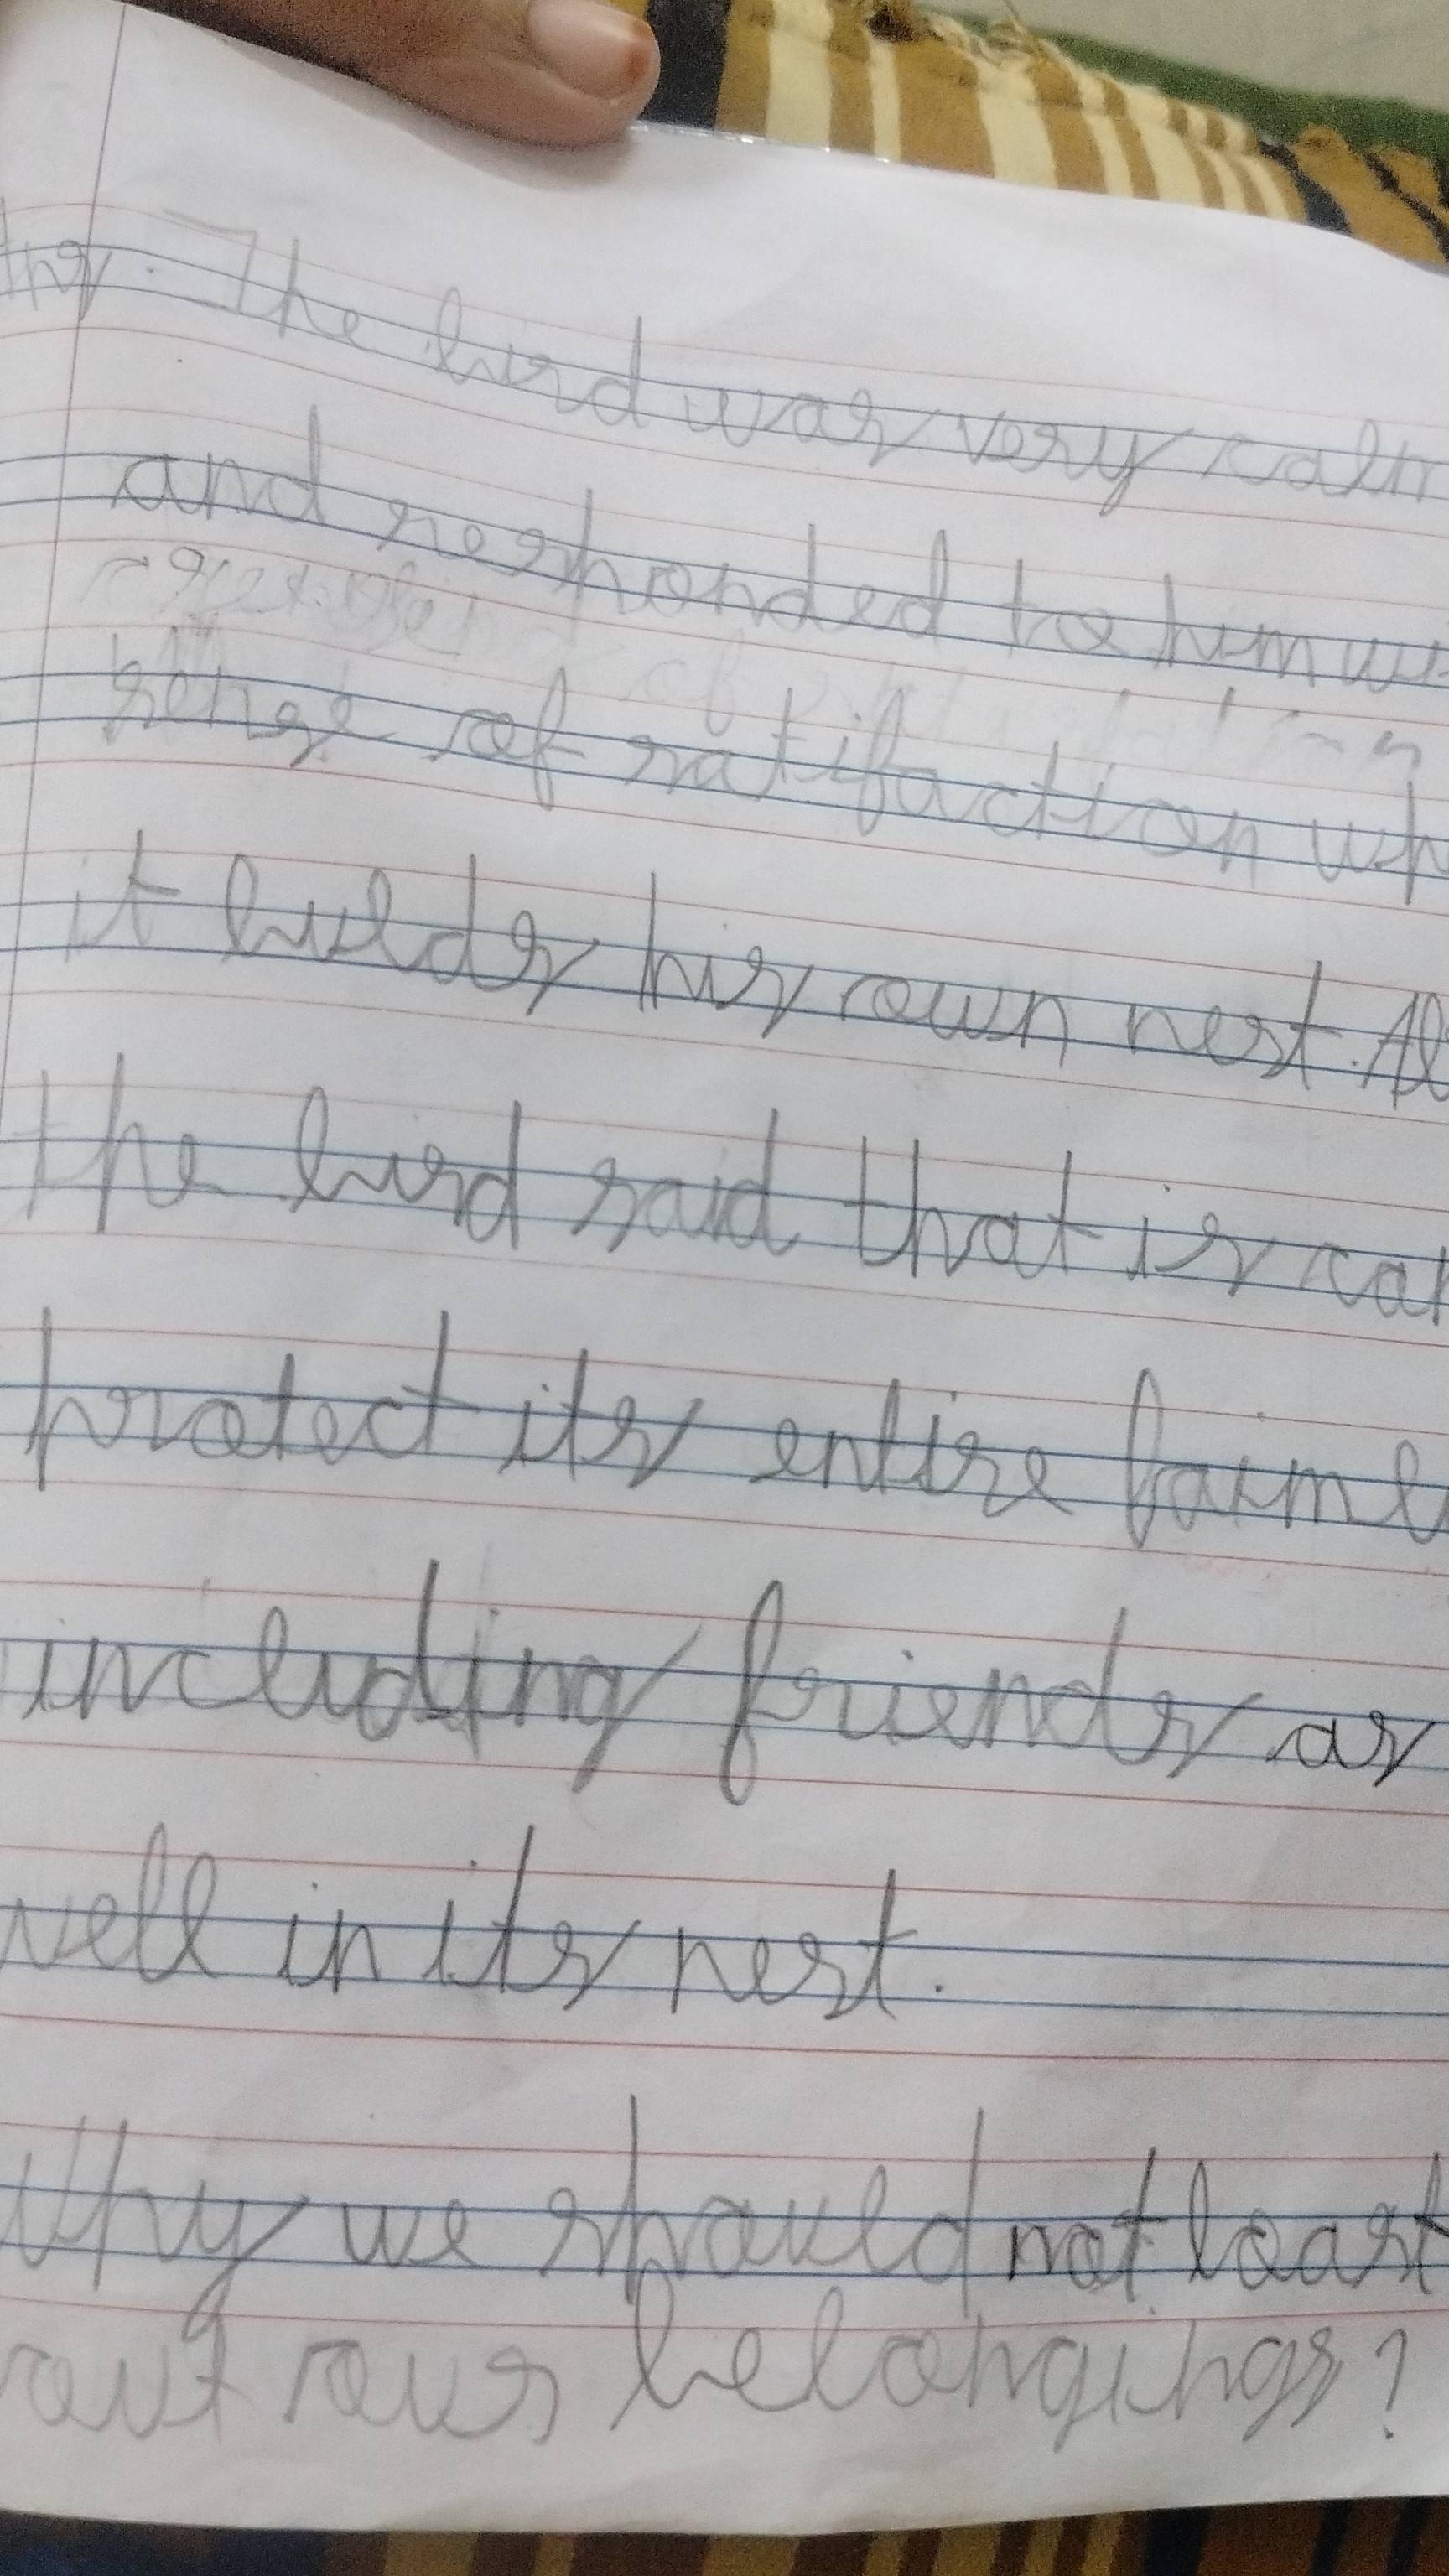 The bird was very calm
and responded to him wi
sense of satifaction wh
it builds his own nest. Al
the bird said that is can
protect its entire faiml
including friends as
well in its nest.
Why we should not boast
out our belongings?